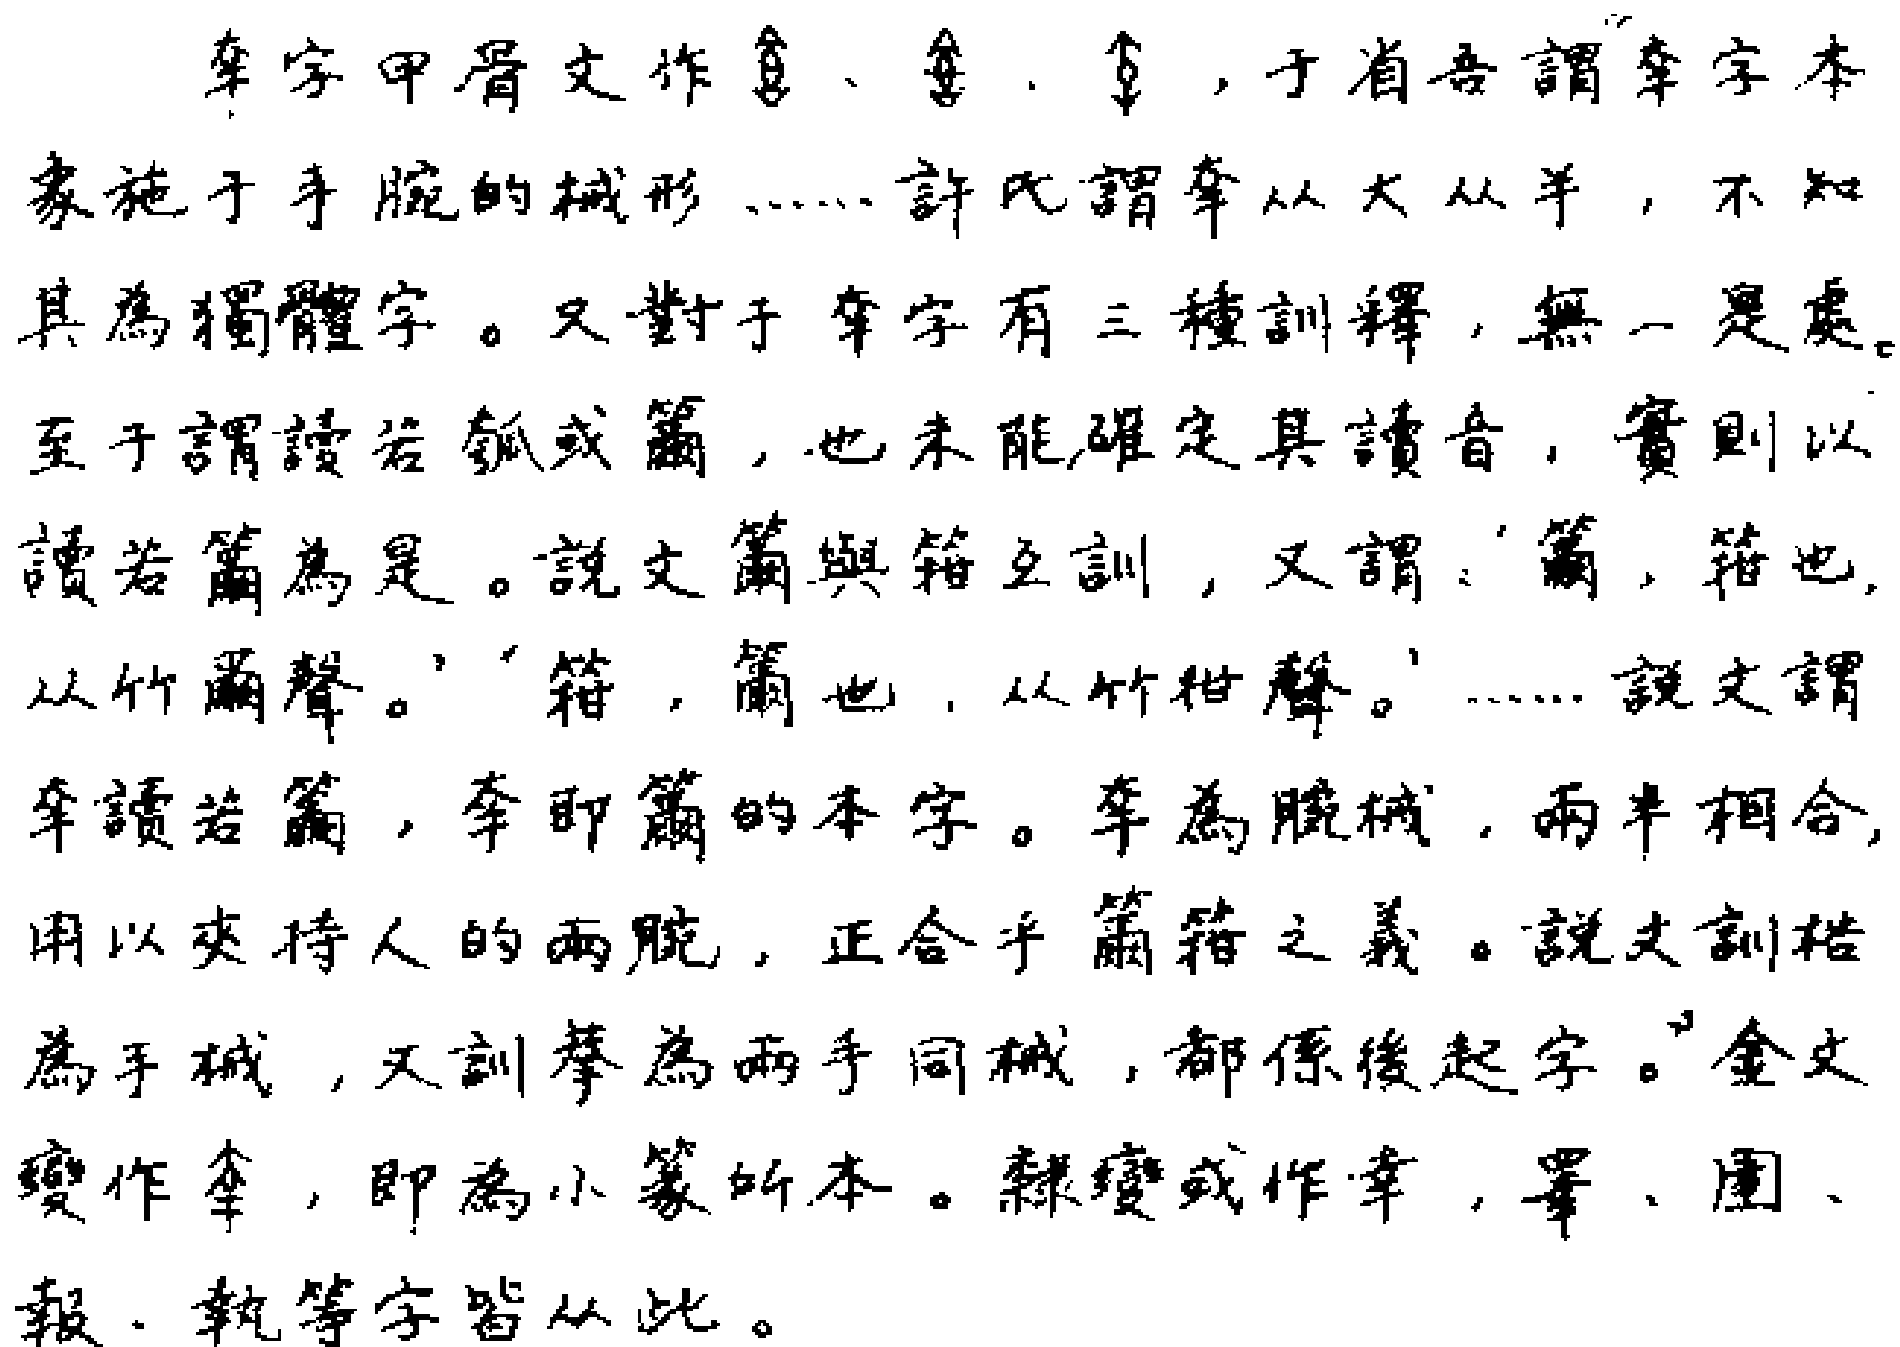 㚔字甲骨文作、、，于省吾謂“㚔字本
象施于手腕的械形……許氏謂㚔从大从羊，不知
其為獨體字。又對于㚔字有三種訓釋，無一是處。
至于謂讀若瓠或籋，也未能確定其讀音，實則以
讀若籋為是。說文籋與箝互訓，又謂：‘籋，箝也，
从竹爾聲。’‘箝，籋也，从竹拑聲。’……說文謂
㚔讀若籋，㚔即籋的本字。㚔為腕械，兩半相合，
用以夾持人的兩腕，正合乎籋箝之義。說文訓梏
為手械，又訓拲為兩手同械，都係後起字。”金文
變作，即為小篆所本。隸變或作幸，睪、圉、
報、執等字皆从此。